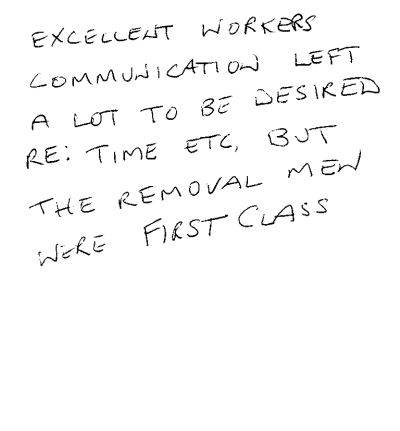 EXCELLENT WORKERS
COMMUNICATION LEFT
A LOT TO BE DESIRED
RE: TIME ETC, BUT
THE REMOVAL MEN
WERE FIRST CLASS